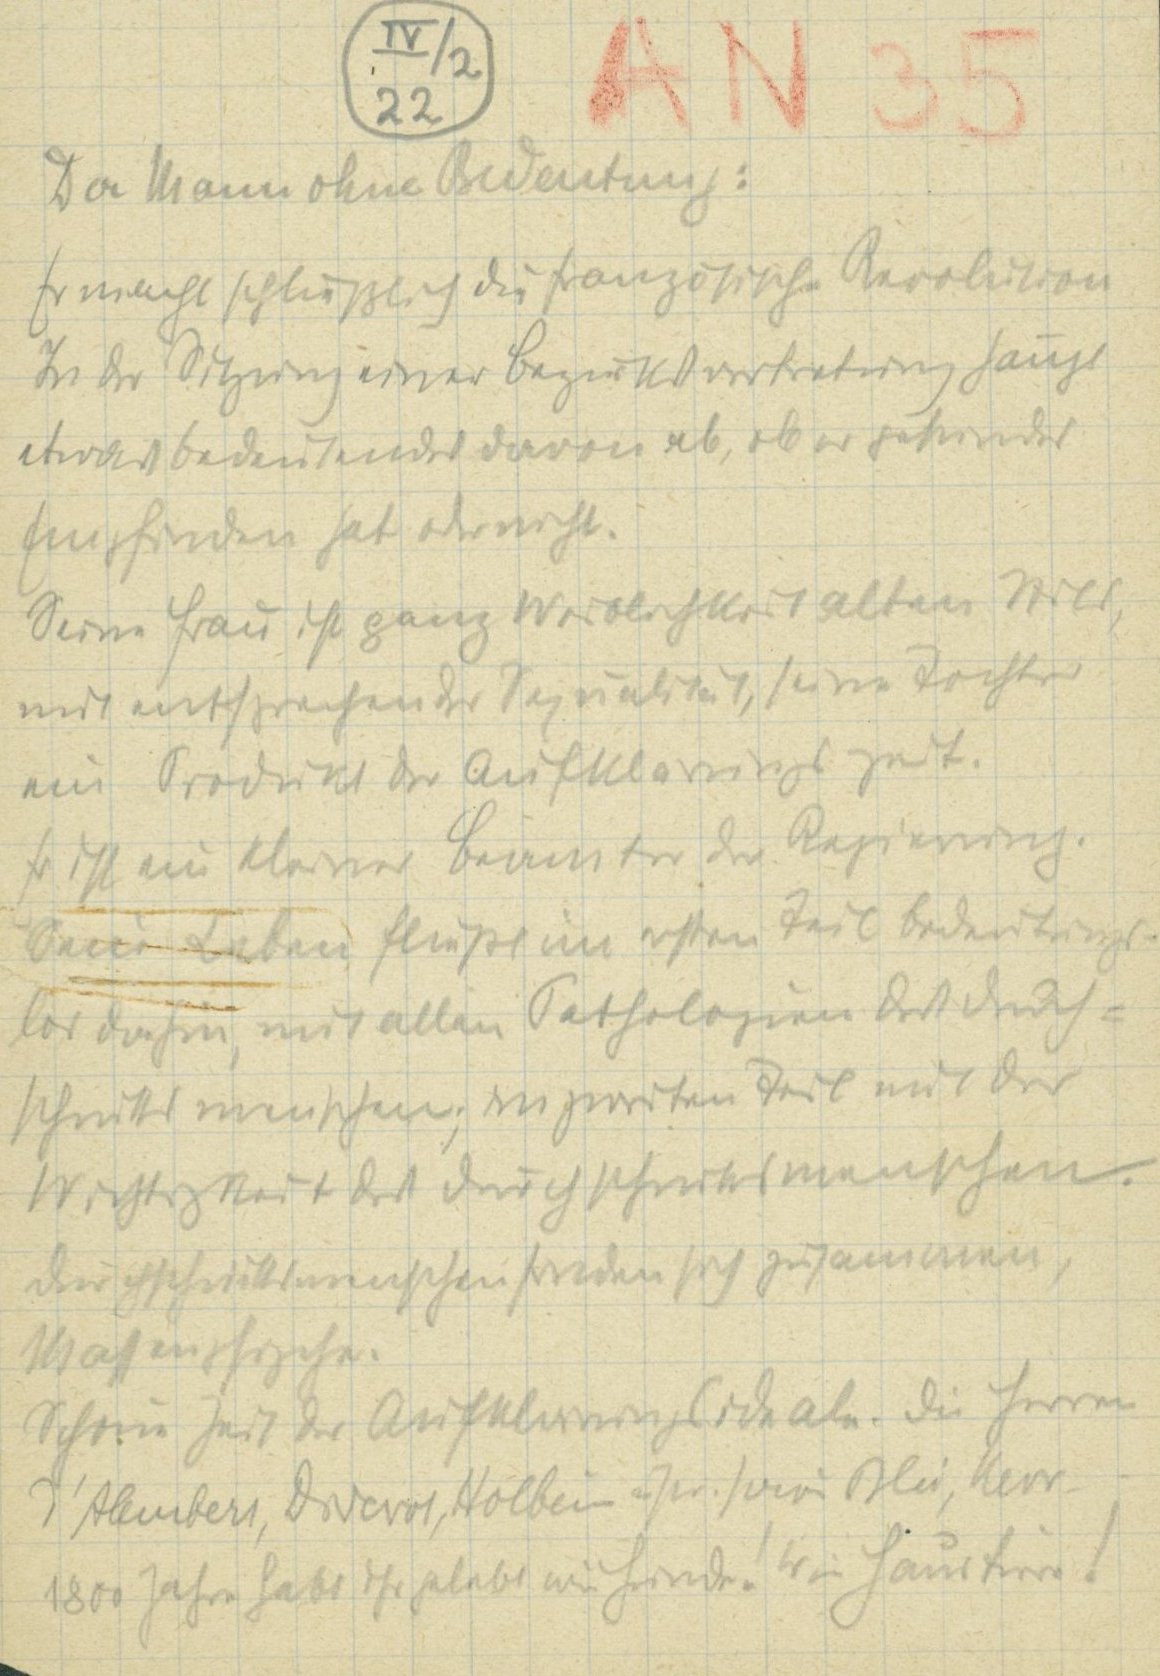 IV/2
22
AN 35
Der Mann ohne Bedeutung:
Er macht schließlich die französische Revolution
In der Sitzung einer Bezirksvertretung hängt
etwas bedeutendes davon ab, ob er gesundes
Empfinden hat oder nicht.
Seine Frau ist ganz Weiblichkeit alten Stils,
mit entsprechender Sexualität, seine Tochter
ein Produkt der Aufklärungszeit.
Er ist ein kleiner Beamter der Regierung.
Sein Leben fließt im ersten Teil bedeutungs-
los dahin, mit allen Pathologien des Durch=
schnittsmenschen; im zweiten Teil mit der
Wichtigkeit des Durchschnittsmenschen.
Durchschnittsmenschen finden sich zusammen,
Massenpsyche.
Schöne Zeit der Aufklärungsideale. Die Herren
D'Alembert, Diderot, Holbein sind wie Blei, Kerr
1800 Jahre habt ihr gelebt wie Hunde! Wie Haustiere!